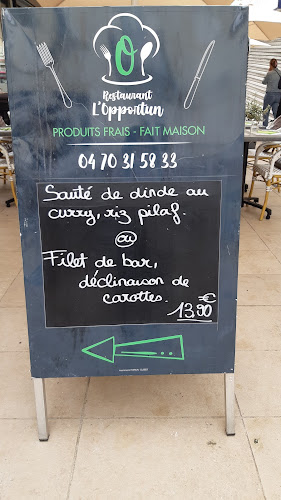 Restaurant
L'Opportun
PRODUITS FRAIS - FAIT MAISON
04 70 31 58 33
Sauté de dinde au
curry, riz pilaf.
ou
Filet de bar,
déclinaison de
carottes.
13,90 €